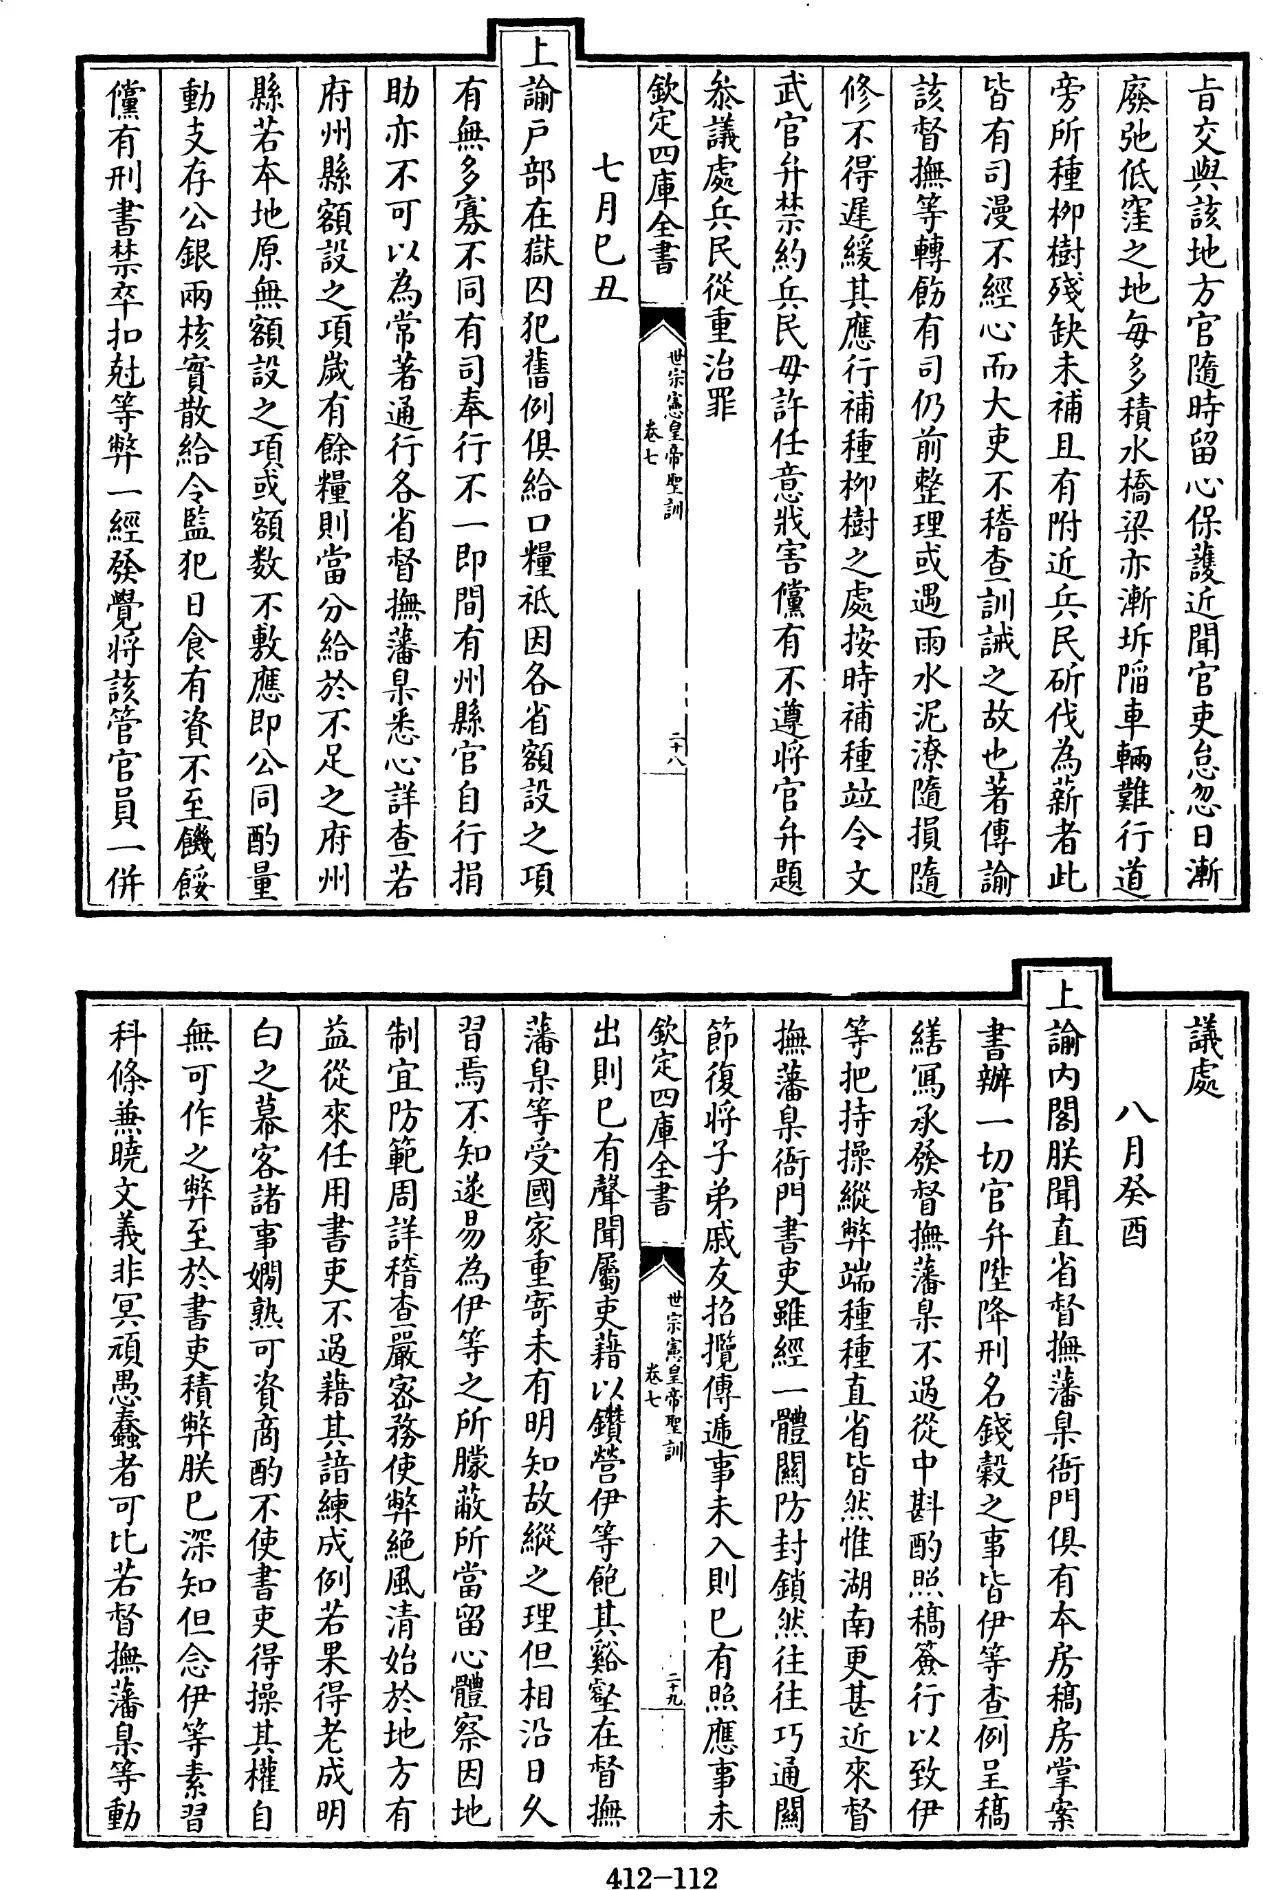 旨交與該地方官隨時留心保䕶近聞官吏怠忽日漸
廢弛低窪之地每多積水橋梁亦漸坼陷車輛難行道
旁所種柳樹殘缺未補且有附近兵民斫伐為薪者此
皆有司漫不經心而大吏不稽查訓誡之故也著傳諭
該督撫等轉飭有司仍前整理或遇雨水泥潦隨損隨
修不得遲緩其應行補種柳樹之處按時補種竝令文
武官弁禁約兵民毋許任意戕害儻有不遵將官弁題
叅議處兵民從重治罪
欽定四庫全書
世宗憲皇帝聖訓
卷七
二十八
七月己丑
上諭户部在獄囚犯舊例俱給口糧祇因各省額設之項
有無多寡不同有司奉行不一即間有州縣官自行捐
助亦不可以為常著通行各省督撫藩臬悉心詳查若
府州縣額設之項歲有餘糧則當分給於不足之府州
縣若本地原無額設之項或額数不敷應即公同酌量
動支存公銀兩核實散給令監犯日食有資不至饑餒
儻有刑書禁卒扣尅等弊一經發覺將該管官員一併
議處
八月癸酉
上諭内閣朕聞直省督撫藩臬衙門俱有本房稿房掌案
書辦一切官弁陞降刑名錢穀之事皆伊等查例呈稿
繕冩承發督撫藩臬不過從中斟酌照稿簽行以致伊
等把持操縱弊端種種直省皆然惟湖南更甚近來督
撫藩臬衙門書吏雖經一體關防封鎖然往往巧通關
節復將子弟戚友招攬傳遞事未入則已有照應事未
欽定四庫全書
世宗憲皇帝聖訓
卷七
二十九
出則已有聲聞屬吏藉以鑽營伊等飽其谿壑在督撫
藩臬等受國家重寄未有明知故縱之理但相沿日久
習焉不知遂易為伊等之所朦蔽所當留心體察因地
制宜防範周詳稽查嚴宻務使弊絶風清始於地方有
益從來任用書吏不過藉其諳練成例若果得老成明
白之幕客諸事嫺熟可資商酌不使書吏得操其權自
無可作之弊至於書吏積弊朕已深知但念伊等素習
科條兼曉文義非冥頑愚蠢者可比若督撫藩臬等動
412-112